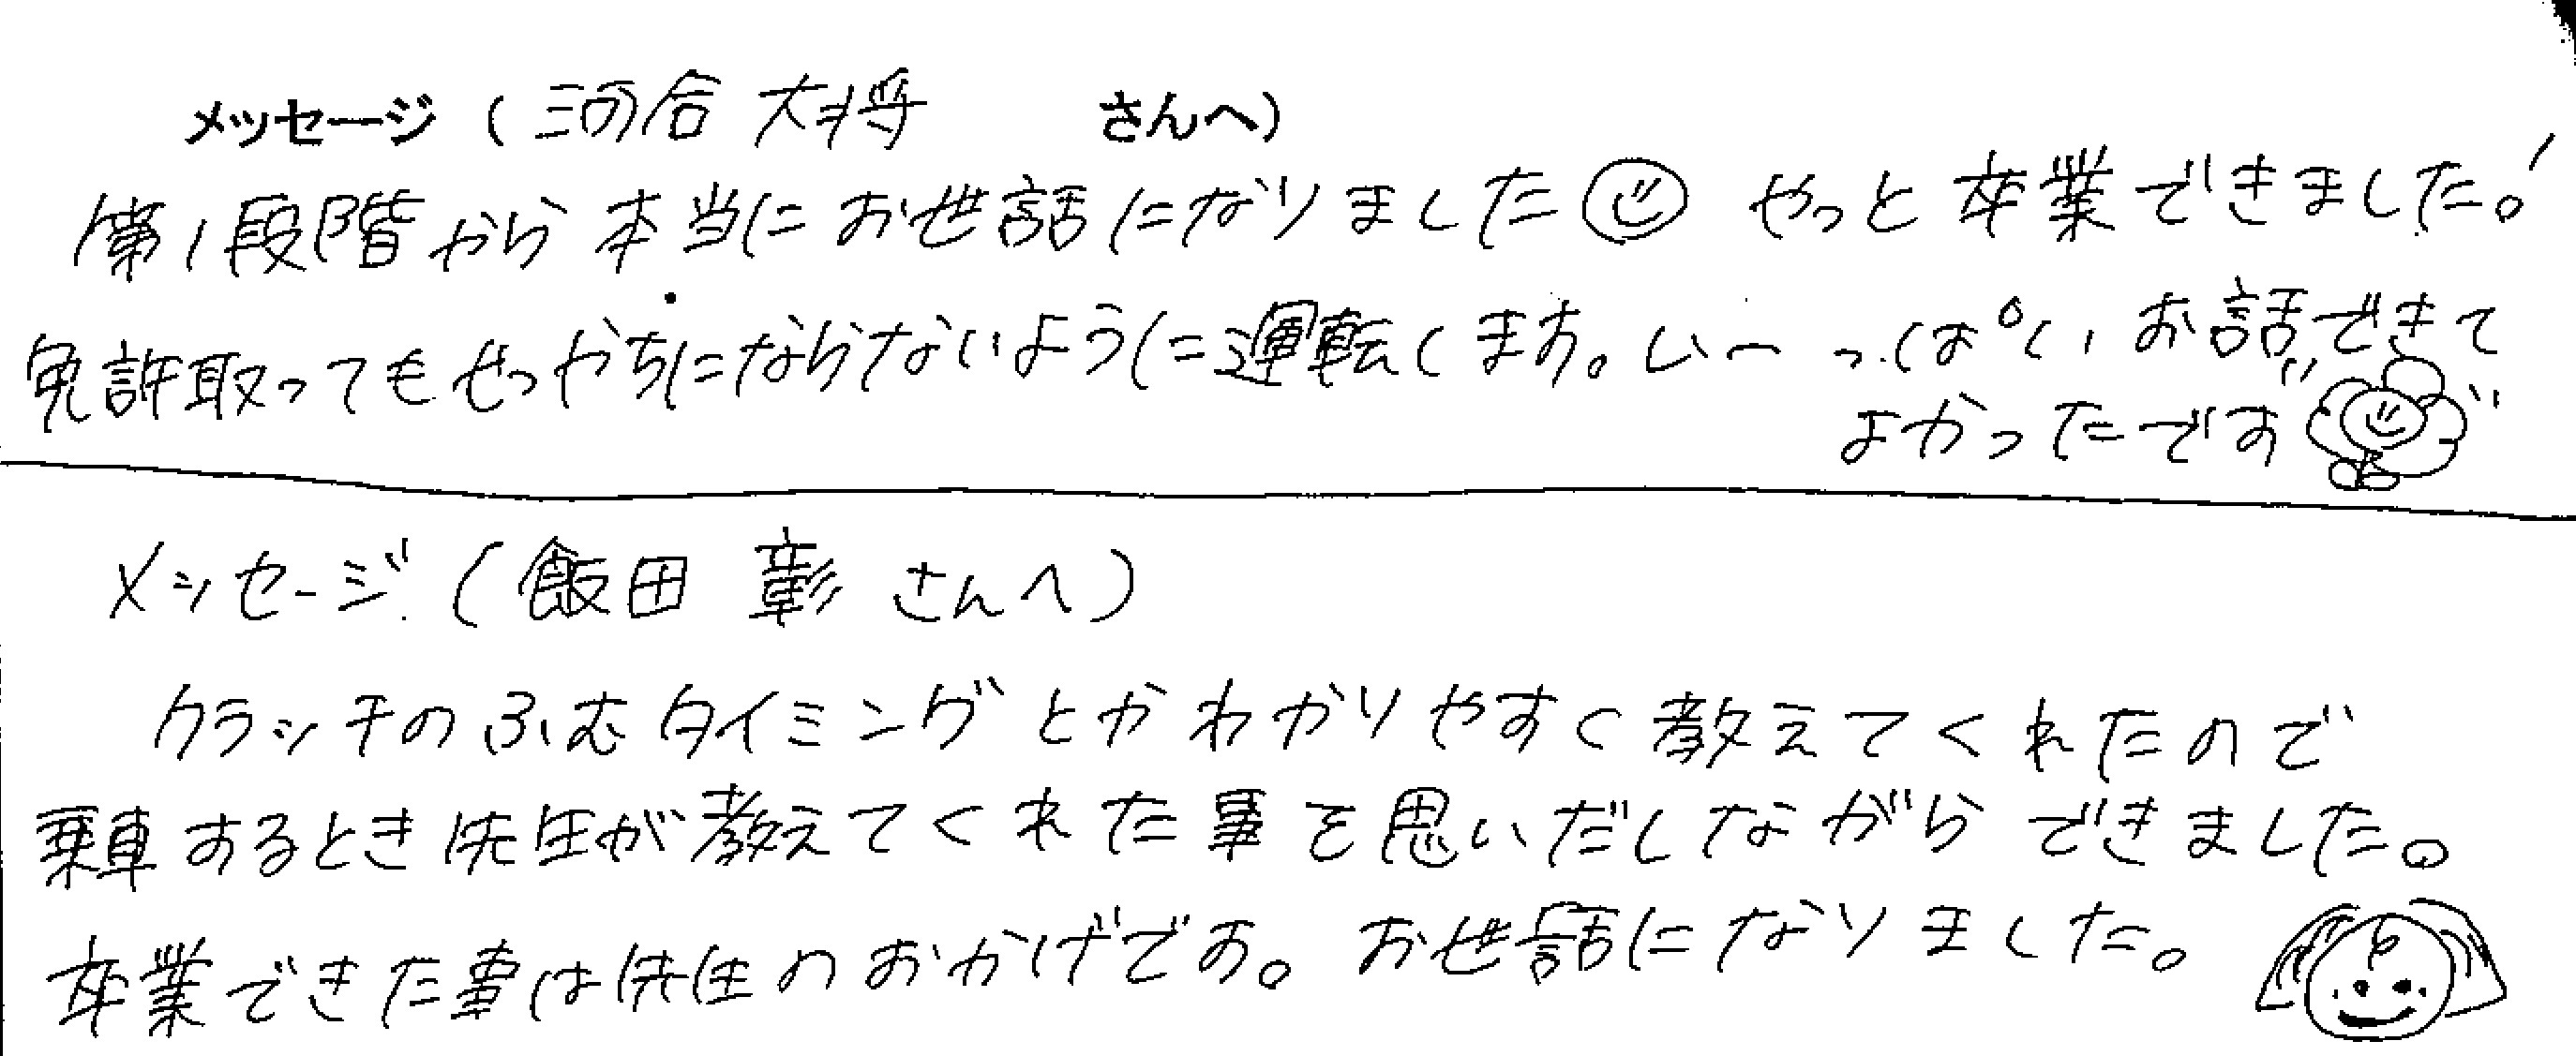 メッセージ（河合 大将 さんへ）
第1段階から本当にお世話になりました やっと卒業できました。!
免許取ってもせっかちにならないように運転します。いーっぱい お話できて
よかったです
メッセージ（飯田 彰 さんへ）
クラッチのふむタイミングとかわかりやすく教えてくれたので
乗車するとき先生が教えてくれた事を思いだしながらできました。
卒業できた事は先生のおかげです。お世話になりました。